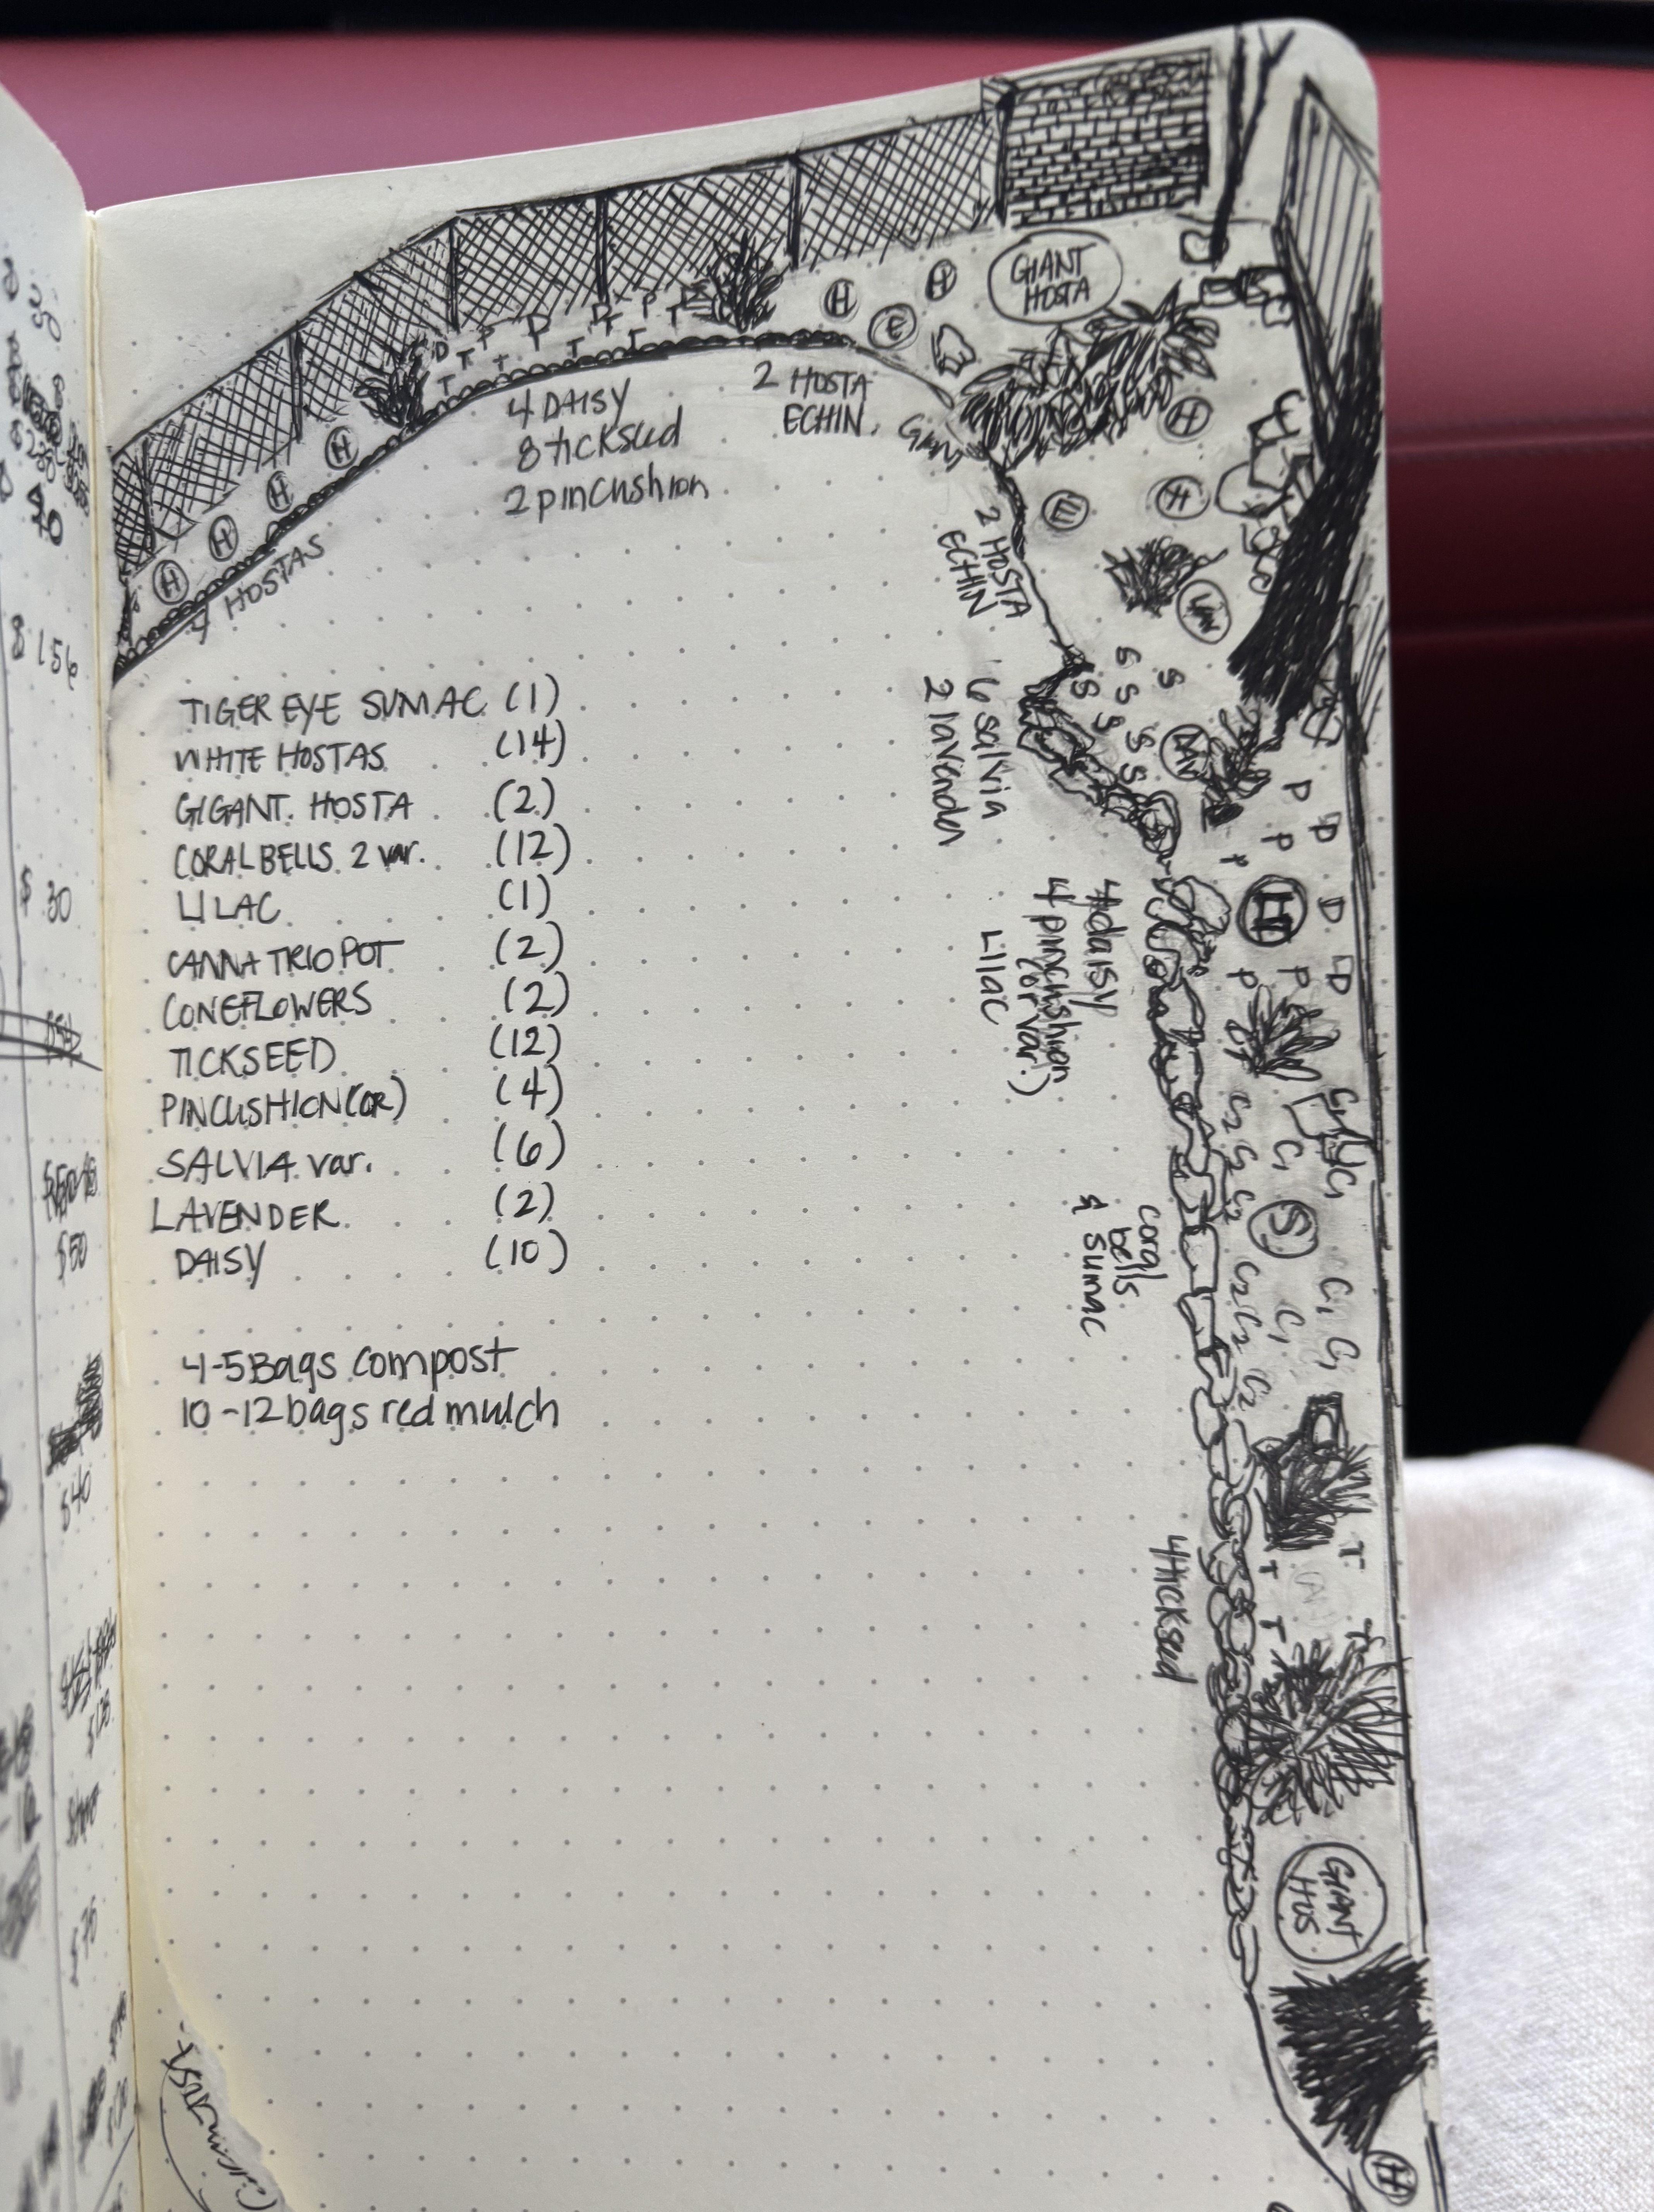 GIANT
HOSTA
H
H
E
H
H
H
H
H
4 HOSTAS
D
T
T
P
D
T
T
P
T
4 DAISY
8 tickseed
2 pincushion
2 HOSTA
ECHIN.
H
H
E
2 HOSTA
ECHIN
S
S
S
S
S
S
6 salvia
2 lavender
P
D
P
D
P
P
D
4 daisy
4 pincushion
(or var.)
Lilac
C1
C2
C2
C1
C2
C1
S
C2
C2
C1
C1
C1
C2
coral
bells
& sumac
T
T
T
4 tickseed
GIANT
HOS
H
TIGER EYE SUMAC (1)
WHITE HOSTAS (14)
GIGANT. HOSTA (2)
CORAL BELLS 2 var. (12)
LILAC (1)
CANNA TRIO POT (2)
CONEFLOWERS (2)
TICKSEED (12)
PINCUSHION(OR) (4)
SALVIA var. (6)
LAVENDER (2)
DAISY (10)
4-5 Bags compost
10-12 bags red mulch
$156
$30
$50
$40